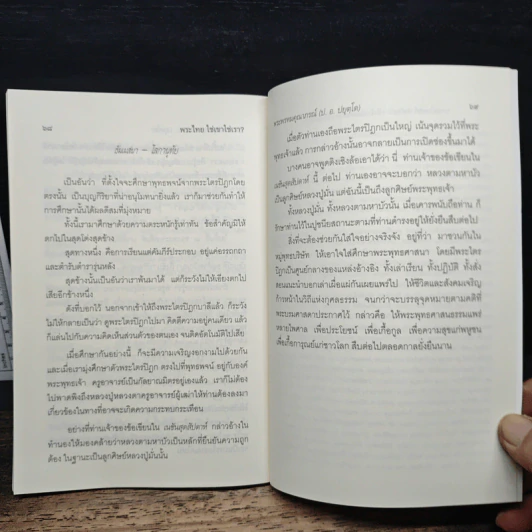 ๖๘
พระไทย ใช่เขาใช่เรา?
เป็นอันว่า ที่ตั้งใจจะศึกษาพุทธพจน์จากพระไตรปิฎกโดย
ตรงนั้น เป็นบุญกิริยาที่น่าอนุโมทนายิ่งแล้ว เราก็มาช่วยกันทำให้
การศึกษานั้นได้ผลดีสมที่มุ่งหมาย
ทั้งนี้เรามาศึกษาด้วยความตระหนักรู้เท่าทัน ข้อสำคัญมิให้
ตกไปในสุดโต่งสุดข้าง
สุดทางหนึ่ง คือการเรียนแต่คัมภีร์ประกอบ อยู่แค่อรรถกถา
และตำรับตำรารุ่นหลัง
สุดข้างนั้นเป็นอันว่าเราพ้นมาได้ แต่ก็ระวังไม่ให้เอียงตกไป
เสียอีกข้างหนึ่ง
ดังที่บอกไว้ นอกจากเข้าให้ถึงพระไตรปิฎกบาลีแล้ว ก็ระวัง
ไม่ให้กลายเป็นว่า ดูพระไตรปิฎกไปมา คิดตีความอยู่คนเดียว แล้ว
ก็แล่นไปกับความคิดเห็นส่วนตัวของตนเอง จนติดอัตโนมัติไปเสีย
เมื่อศึกษากันอย่างนี้ ก็จะมีความเจริญงอกงามไปด้วยกัน
และเมื่อเรามุ่งศึกษาตัวพระไตรปิฎก ตรงไปที่พุทธพจน์ อยู่กับองค์
พระพุทธเจ้า ครูอาจารย์เป็นกัลยาณมิตรอยู่เองแล้ว เราก็ไม่ต้อง
ไปพาดพิงถึงหลวงปู่หลวงตาครูอาจารย์ผู้เฒ่าให้ท่านต้องลงมา
เกี่ยวข้องในทางที่อาจจะเกิดความกระทบกระเทือน
อย่างที่ท่านเจ้าของข้อเขียนใน เนชั่นสุดสัปดาห์ กล่าวอ้างใน
ทำนองให้มองคล้ายว่าหลวงตามหาบัวเป็นหลักที่ยืนยันความถูก
ต้อง ในฐานะเป็นลูกศิษย์หลวงปู่มั่นนั้น
พระพรหมคุณาภรณ์ (ป. อ. ปยุตฺโต)
๖๙
เมื่อตัวท่านเองถือพระไตรปิฎกเป็นใหญ่ เน้นจุดรวมไว้ที่พระ
พุทธเจ้าแล้ว การกล่าวอ้างนั้นอาจกลายเป็นการเปิดช่องขึ้นมาได้
บางคนอาจพูดดิ้งเชิงล้อเอาได้ว่า นี่ ท่านเจ้าของข้อเขียนใน
เนชั่นสุดสัปดาห์ นี่ ต่อไป ท่านเองอาจจะบอกว่า หลวงตามหาบัว
เป็นลูกศิษย์หลวงปู่มั่นนะ แต่ฉันนี่เป็นถึงลูกศิษย์พระพุทธเจ้า
ทั้งหลวงปู่มั่น ทั้งหลวงตามหาบัวนั้น เมื่อเคารพนับถือท่าน ก็
รักษาท่านไว้ในปูชนียสถานะตามที่ท่านดำรงอยู่ให้ยั่งยืนสืบต่อไป
สิ่งที่จะต้องช่วยกันใส่ใจอย่างจริงจัง อยู่ที่ว่า มาชวนกันใน
หมู่พุทธบริษัท ให้เอาใจใส่ศึกษาพระพุทธศาสนา โดยมีพระไตร
ปิฎกเป็นศูนย์กลางของแหล่งอ้างอิง ทั้งเล่าเรียน ทั้งปฏิบัติ ทั้งสั่ง
สอนแนะนำบอกเล่าเผื่อแผ่กันเผยแพร่ไป ให้ชีวิตและสังคมเจริญ
ก้าวหน้าไปในวิถีแห่งกุศลธรรม จนกว่าจะบรรลุจุดหมายตามคติที่
พระบรมศาสดาประกาศไว้ กล่าวคือ ให้พระพุทธศาสนาธรรมแพร่
หลายไพศาล เพื่อประโยชน์ เพื่อเกื้อกูล เพื่อความสุขแก่พหูชน
เพื่อเกื้อการุณย์แก่ชาวโลก สืบต่อไปตลอดกาลยั่งยืนนาน.